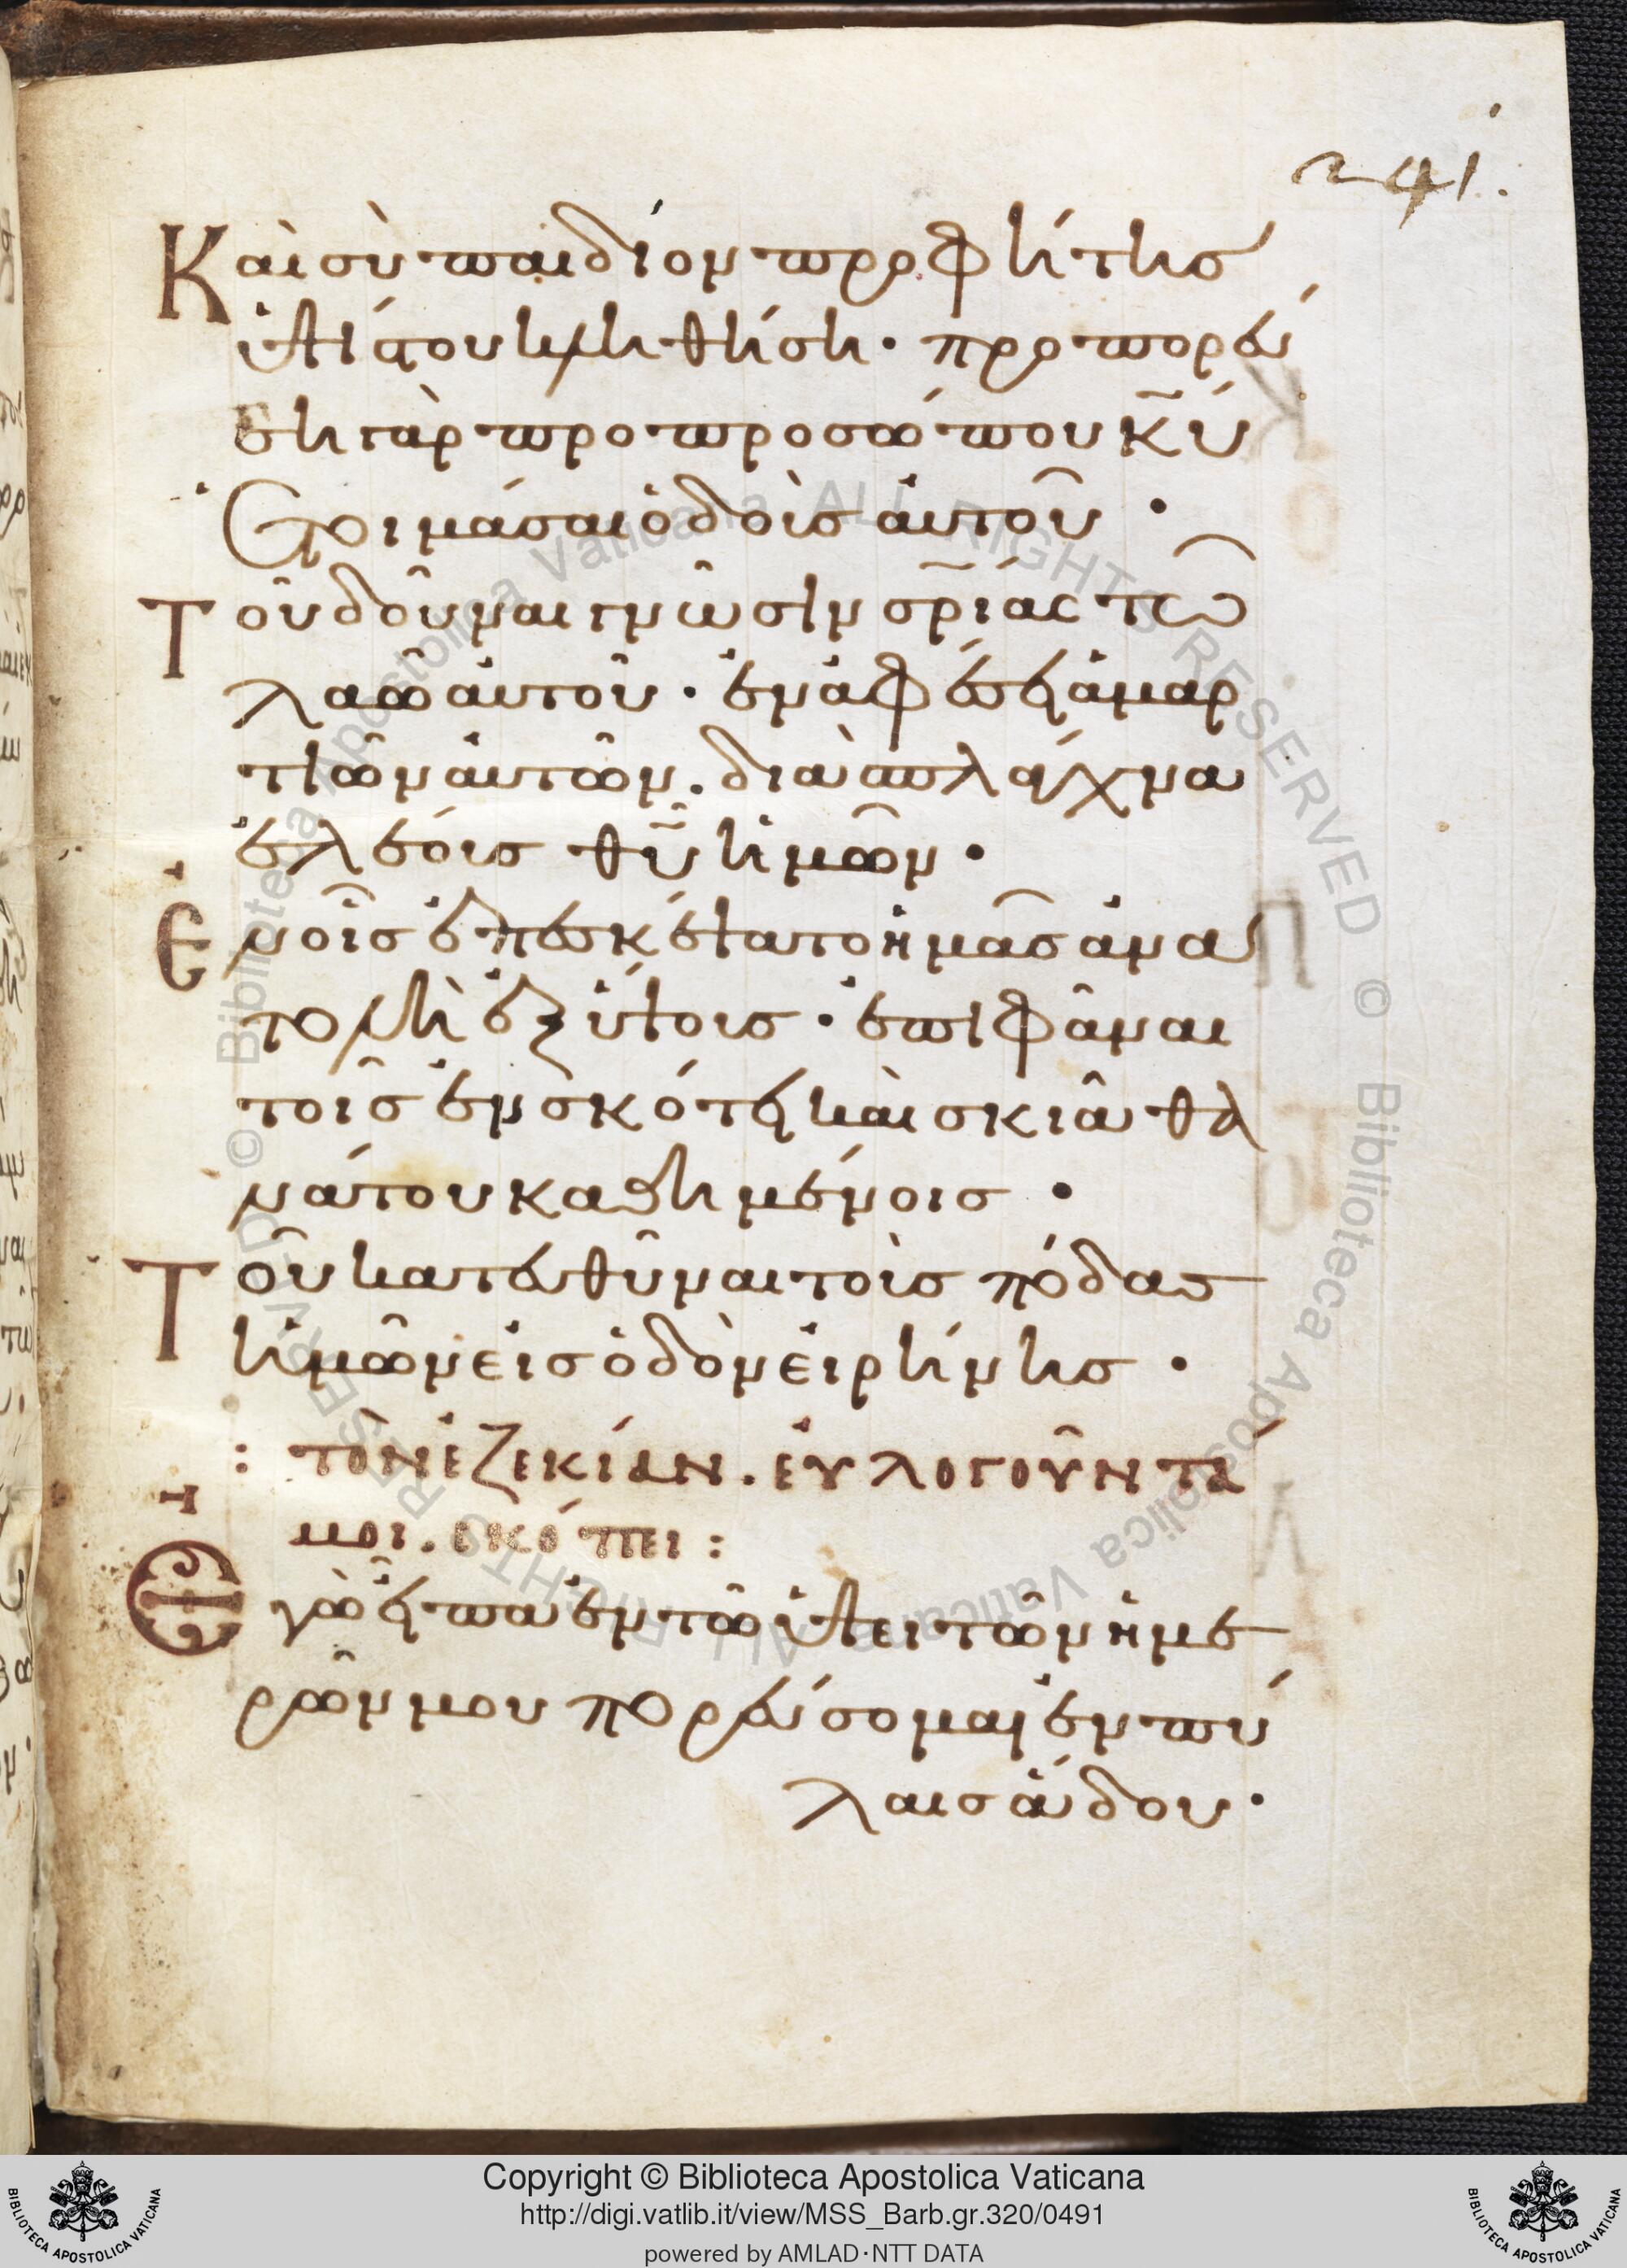 241.
Καὶ σὺ παιδίον προφήτης
ὑψίστου κληθήση· προπορεύ
ση γὰρ προ προσώπου κ̅υ̅
ἑτοιμάσαι ὁδοὺς αὐτοῦ ·
Τοῦ δοῦναι γνῶσιν σ̅ρ̅ίας τῶ
λαῶ αὐτοῦ · ἐν ἀφέσει ἁμαρ
τιῶν αὐτῶν. διὰ σπλάγχνα
ἐλέους θ̅υ̅ ἡμῶν ·
Ἐν οἷς ἐπεσκέψατο ἡμᾶς ἀνα
τολὴ ἐξ ὕψους · ἐπιφᾶναι
τοῖς ἐν σκότει καὶ σκιᾶ θα
νάτου καθημένοις ·
Τοῦ κατευθῦναι τοὺς πόδας
ἡμῶν εἰς ὁδὸν εἰρήνης ·
: τὸν ἐζεκίαν. εὐλογοῦντά
μοι. σκόπει :
Ἐγὼ εἶπα ἐν τῶ ὕψει τῶν ἡμε
ρῶν μου πορεύσομαι ἐν πύ
λαις ἅδου ·
Copyright © Biblioteca Apostolica Vaticana
http://digi.vatlib.it/view/MSS_Barb.gr.320/0491
powered by AMLAD·NTT DATA
BIBLIOTECA APOSTOLICA VATICANA
BIBLIOTECA APOSTOLICA VATICANA
© Biblioteca Apostolica Vaticana ALL RIGHTS RESERVED © Biblioteca Apostolica Vaticana ALL RIGHTS RESERVED